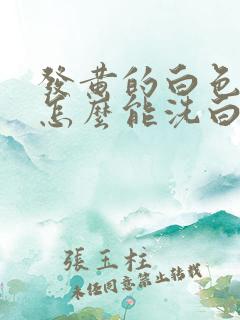 發黃的白色
怎麼能洗白
張玉柱
未經同意禁止轉載